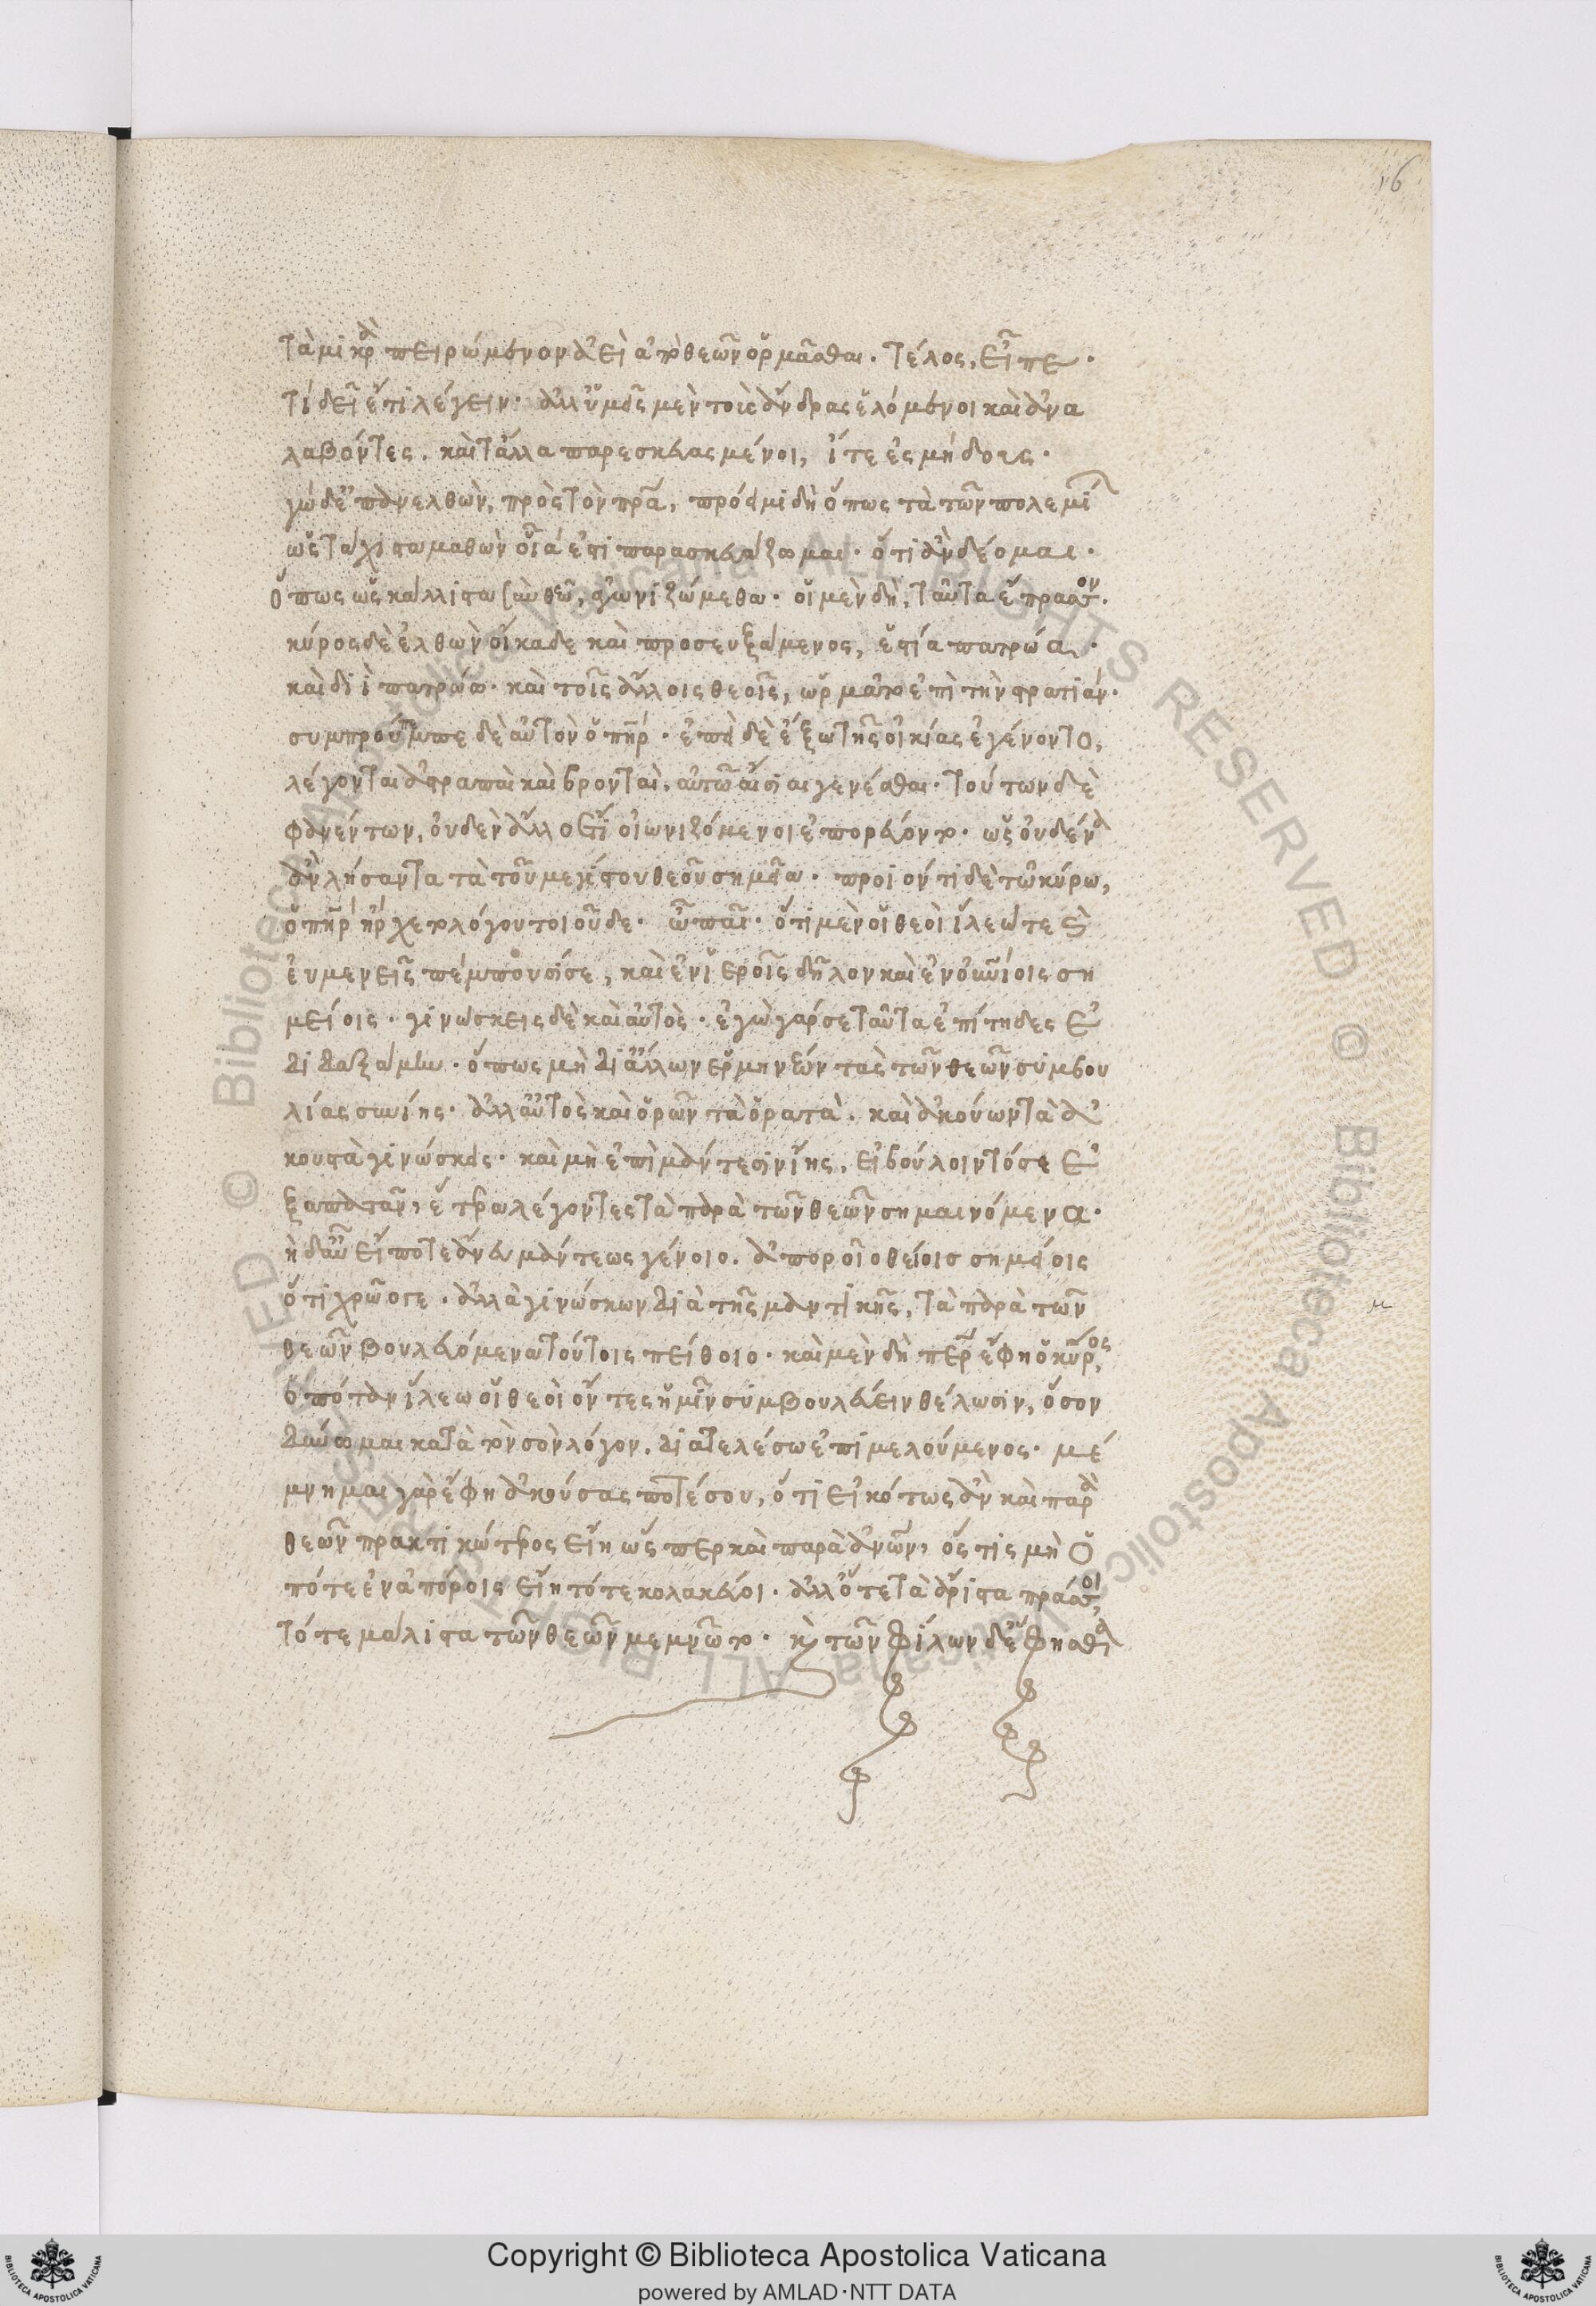 16
τὰ μικρὰ πειρώμενον ἀεὶ ἀπὸ θεῶν ὁρμᾶσθαι. τέλος, εἶπε.
τί δεῖ ἔτι λέγειν. ἀλλ' ὑμεῖς μὲν τοὺς ἄνδρας ἑλόμενοι καὶ ἀνα
λαβόντες. καὶ τἄλλα παρεσκευασμένοι, ἴτε ἐς μήδους.
γὼ δ' ἐπανελθὼν, πρὸς τὸν πρα, πρόειμι δὴ ὅπως τὰ τῶν πολεμί
ὡς τάχιστα μαθὼν οἷά ἐστι παρασκευάζωμαι. ὅτι ἂν δέομαι.
ὅπως ὡς κάλλιστα σὺν θεῷ, ἀγωνιζώμεθα. οἱ μὲν δὴ, ταῦτα ἔπραττον.
κύρος δὲ ἐλθὼν οἴκαδε καὶ προσευξάμενος, ἑστία πατρώα.
καὶ διὶ πατρώω. καὶ τοῖς ἄλλοις θεοῖς, ὡρμᾶτο ἐπὶ τὴν στρατιάν.
συμπρούπεμπε δὲ αὐτὸν ὁ πηρ. ἐπεὶ δὲ ἔξω τῆς οἰκίας ἐγένοντο,
λέγονται ἀστραπαὶ καὶ βρονταὶ, αὐτῷ αἴσιαι γενέσθαι. τούτων δὲ
φανέντων, οὐδὲν ἄλλο ἔτι οἰωνιζόμενοι ἐπορεύοντο. ὡς οὐδένα
ἂν λήσαντα τὰ τοῦ μεγίστου θεοῦ σημεῖα. προϊόντι δὲ τῶ κύρω,
ὁ πηρ ἤρχετο λόγου τοιοῦδε. ὦ παῖ. ὅτι μὲν οἱ θεοὶ ἵλεώ τε καὶ
ἐυμενεῖς πέμπουσί σε, καὶ ἐν ἱεροῖς δῆλον καὶ ἐν οὐνίοις ση
μείοις. γινώσκεις δὲ καὶ αὐτὸς. ἐγὼ γάρ σε ταῦτα ἐπίτηδες ἐ
διδαξάμην. ὅπως μὴ δι' ἄλλων ἑρμηνέων τὰς τῶν θεῶν συμβου
λίας συνίης. ἀλλ' αὐτὸς καὶ ὁρῶν τὰ ὁρατὰ. καὶ ἀκούων τὰ ἀ
κουστὰ γινώσκεις. καὶ μὴ ἐπὶ μάντεσιν ἴης, εἰ βούλοιντό σε ἐ
ξαπατᾶν, ἕτερα λέγοντες τὰ παρὰ τῶν θεῶν σημαινόμενα.
ἠ δ' αὖ εἴποτε ἄνευ μάντεως γένοιο. ἀποροῖο θείοισ σημείοις
ὅτι χρῶσε. ἀλλὰ γινώσκων διὰ τῆς μαντικῆς, τὰ παρὰ τῶν
θεῶν βουλευόμενα τούτοις πείθοιο. καὶ μὲν δὴ περ ἔφη ὁ κῦρος,
ὁπόταν ἵλεω οἱ θεοὶ ὄντες ἡμῖν συμβουλεύειν θέλωσιν, ὅσον
δύνωμαι κατὰ τὸν σὸν λόγον, διατελέσω ἐπιμελούμενος. μέ
μνημαι γὰρ ἔφη ἀκούσας ποτέ σου, ὅτι εἰκότως ἂν καὶ παρὰ
θεῶν πρακτικώτερος εἴη ὥσπερ καὶ παρὰ ἀνων, ὅς τις μὴ ὁ
πότε ἐν ἀπόροις εἴη τότε κολακεύοι. ἀλλ' ὅτε τὰ ἄριστα πράττοι,
τότε μάλιστα τῶν θεῶν μεμνῶτο. καὶ τῶν φίλων δ' ἔφησθα